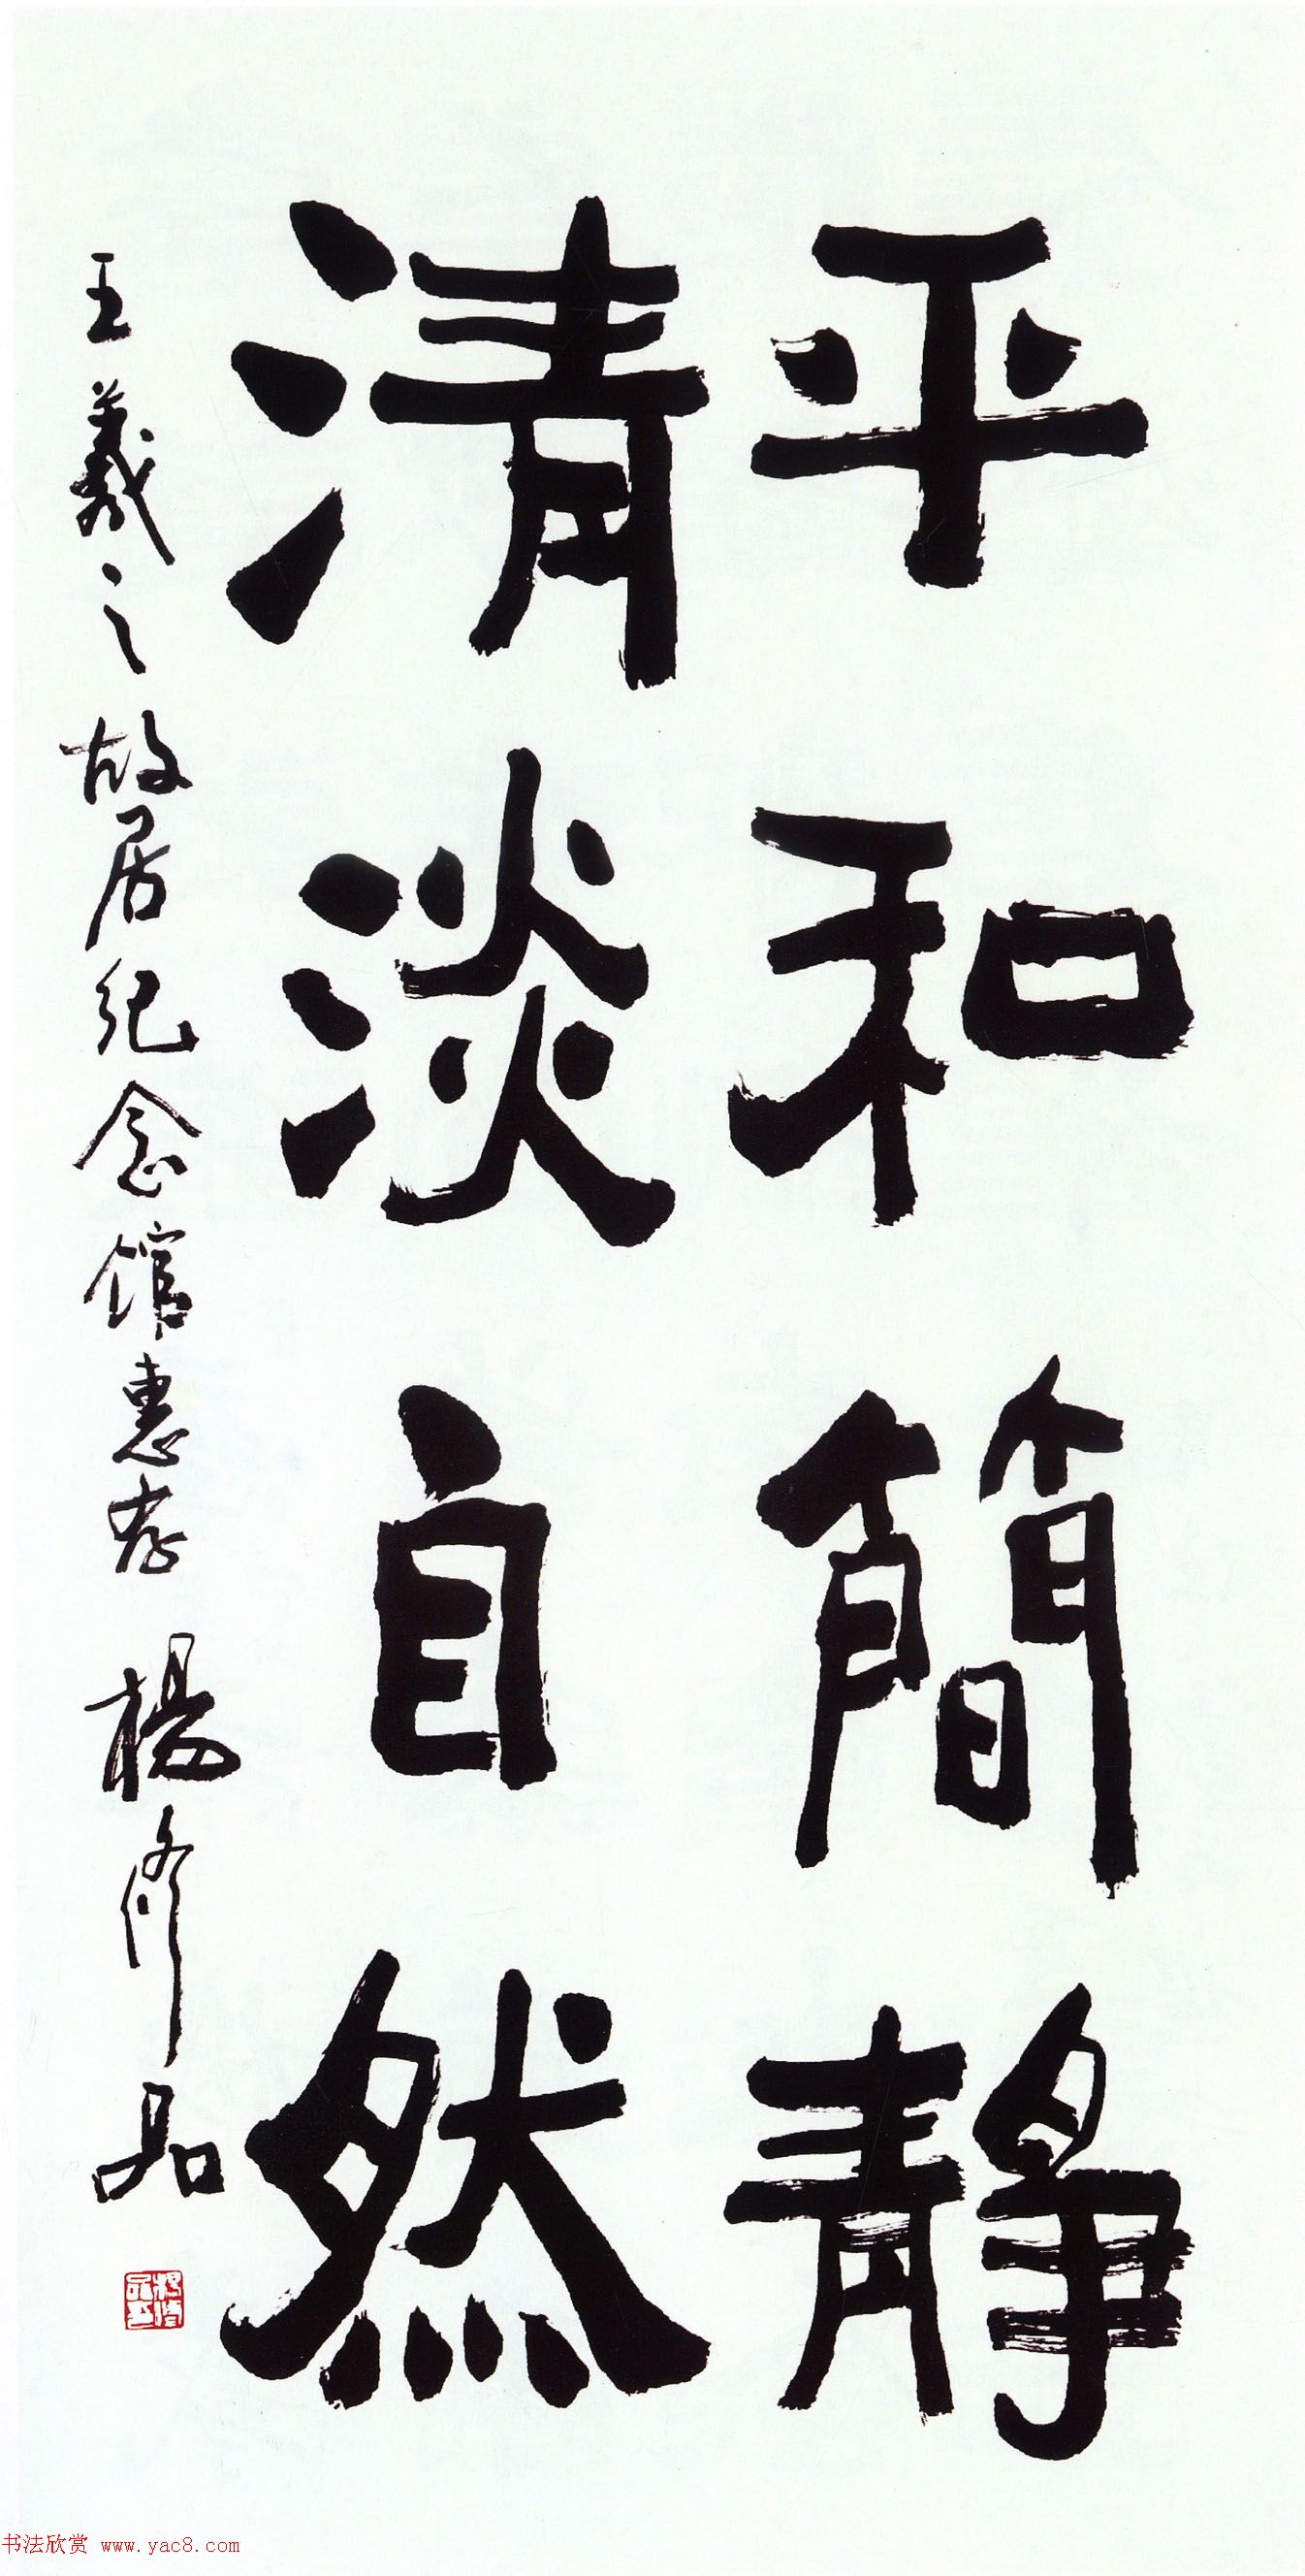 平和簡靜
清淡自然
王羲之故居纪念馆惠存 楊修品
書法欣赏 www.yac8.com